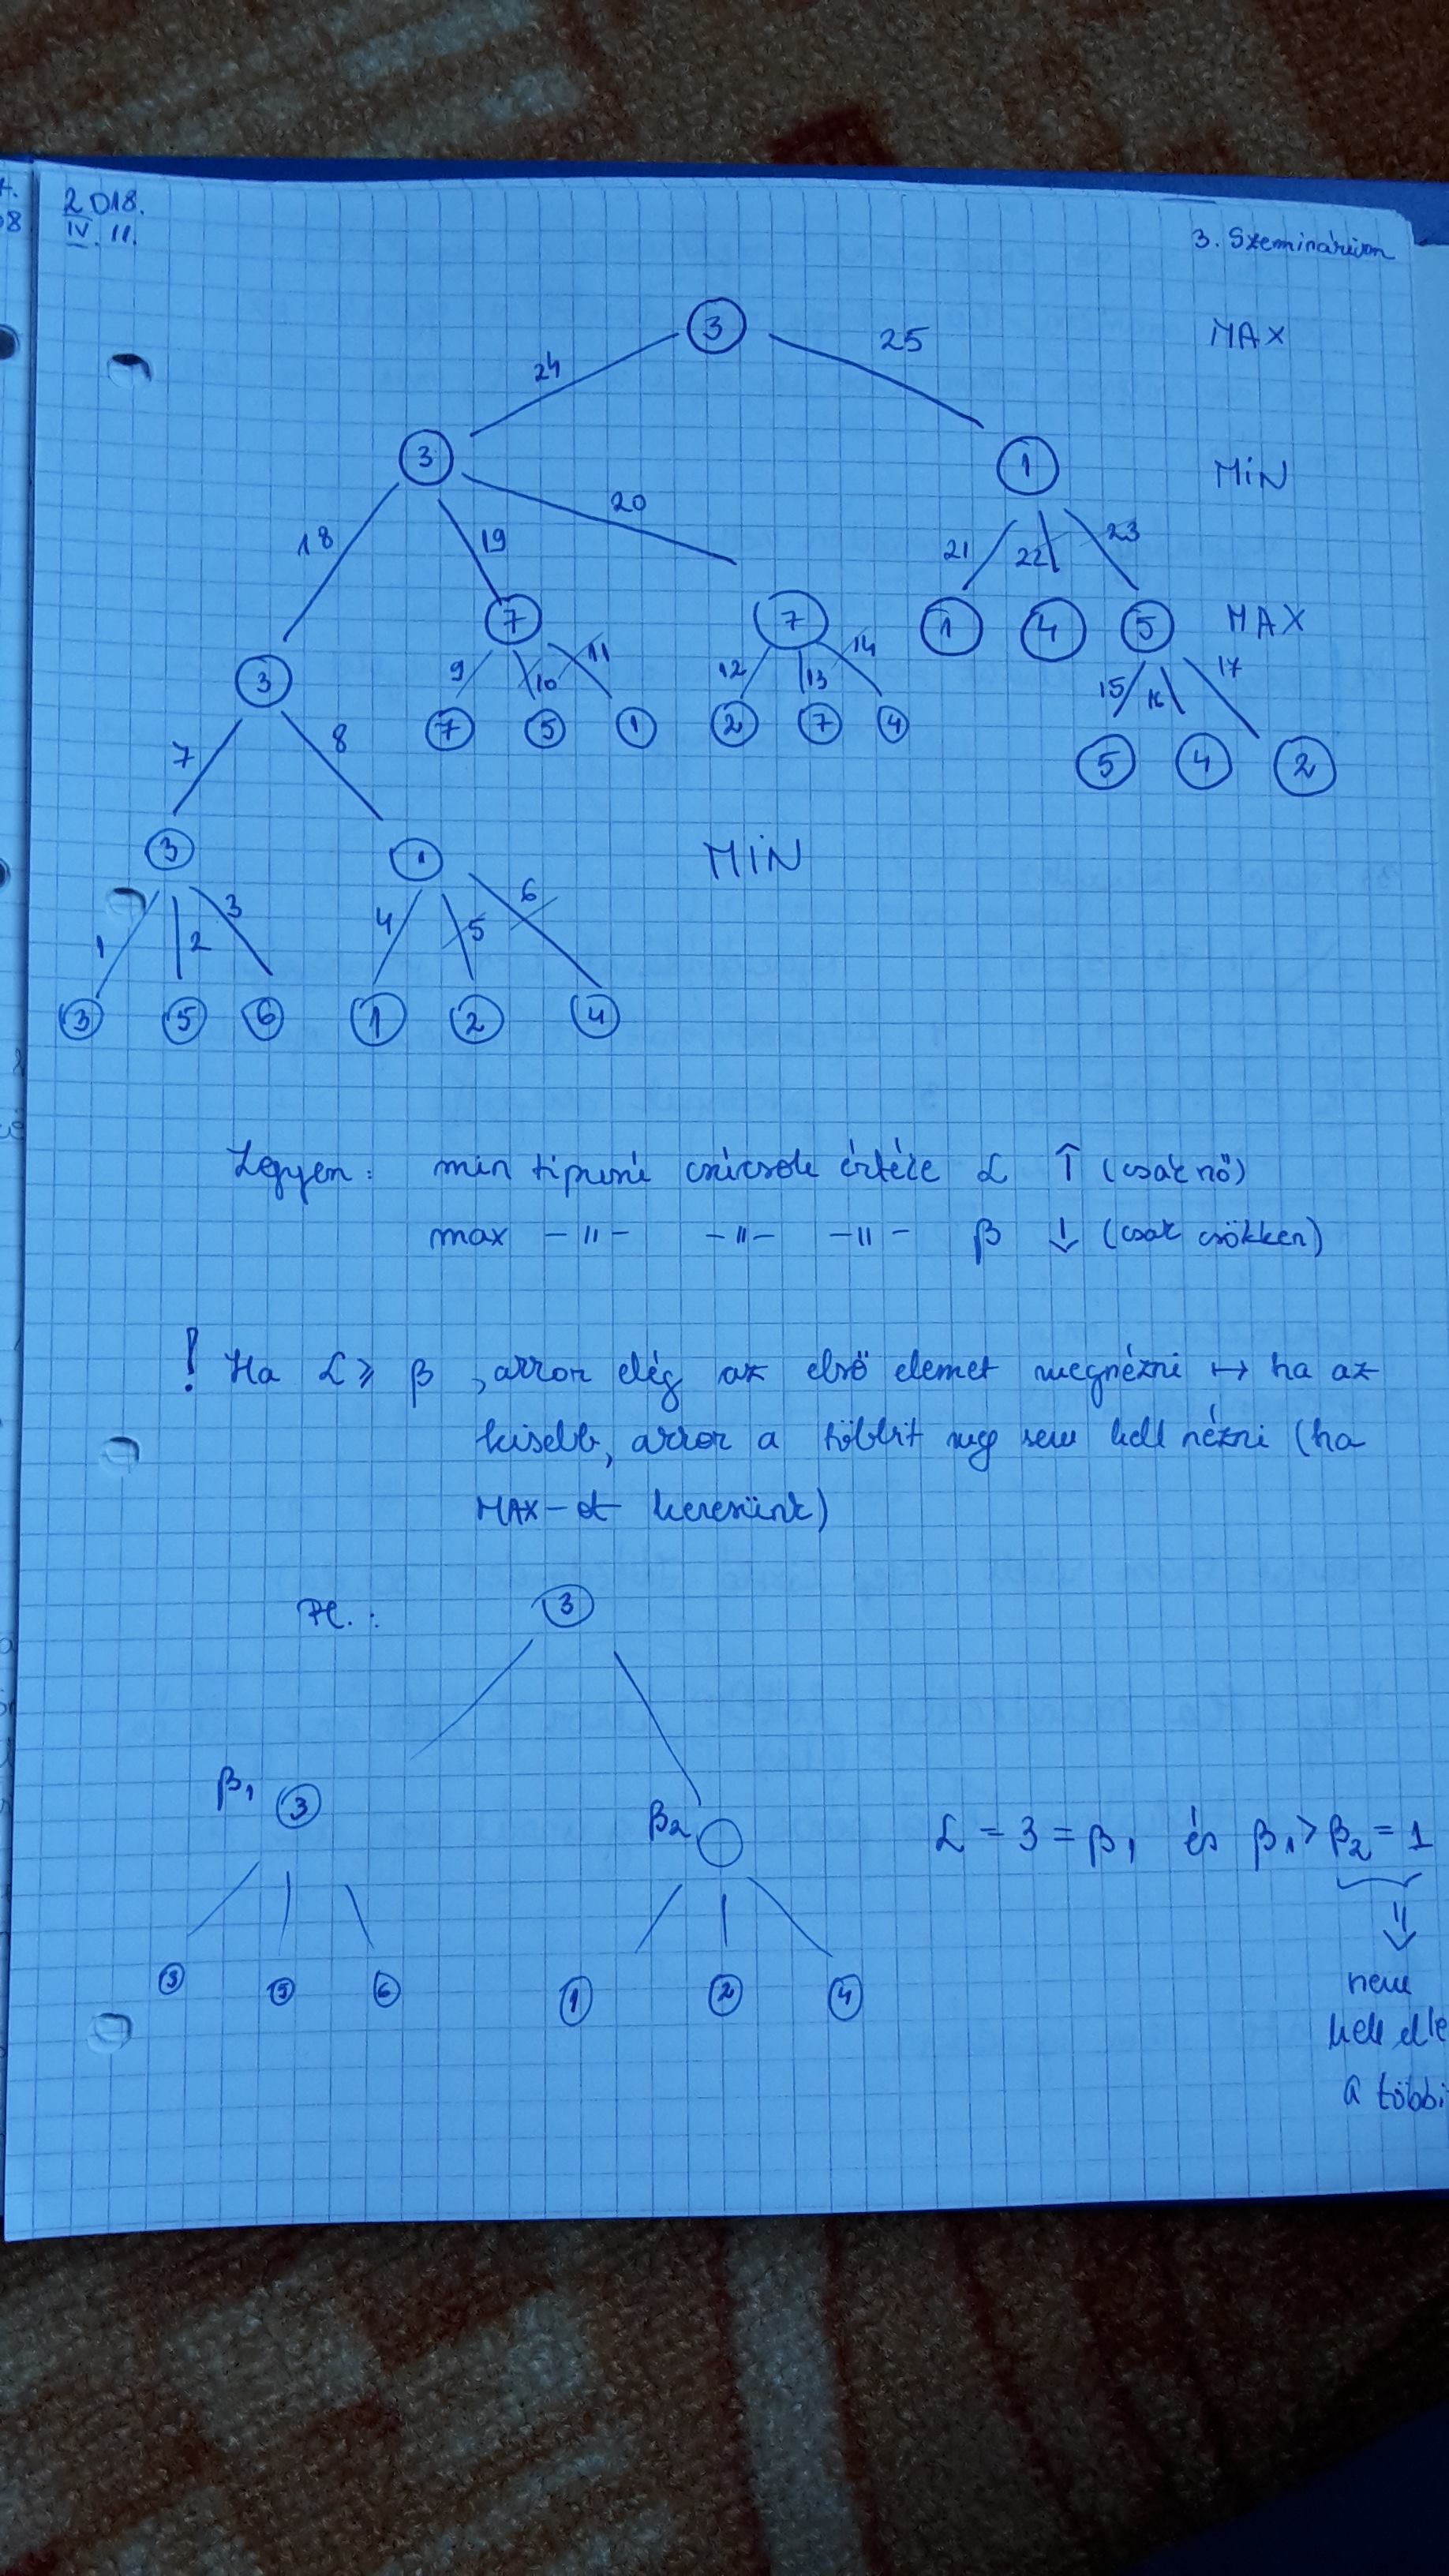 2018.
IV. 11.
3. Szeminárium
3
MAX
24
25
3
1
MIN
18
19
20
21
22
23
3
7
7
1
4
5
MAX
9
10
11
12
13
14
15
16
17
7
5
1
2
7
4
5
4
2
7
8
3
1
MIN
1
2
3
4
5
6
3
5
6
1
2
4
Legyen: min típusú csúcsok értéke α ↑ (csak nő)
max -"- -"- -"- β ↓ (csak csökken)
! Ha α ≥ β, akkor elég az első elemet megnézni ↦ ha az
kisebb, akkor a többit meg sem kell nézni (ha
MAX-ot keresünk)
Pl.:
3
β₁ 3
β₂
α = 3 = β₁ és β₁ > β₂ = 1
3
5
6
1
2
4
⇓
nem
kell
a többi